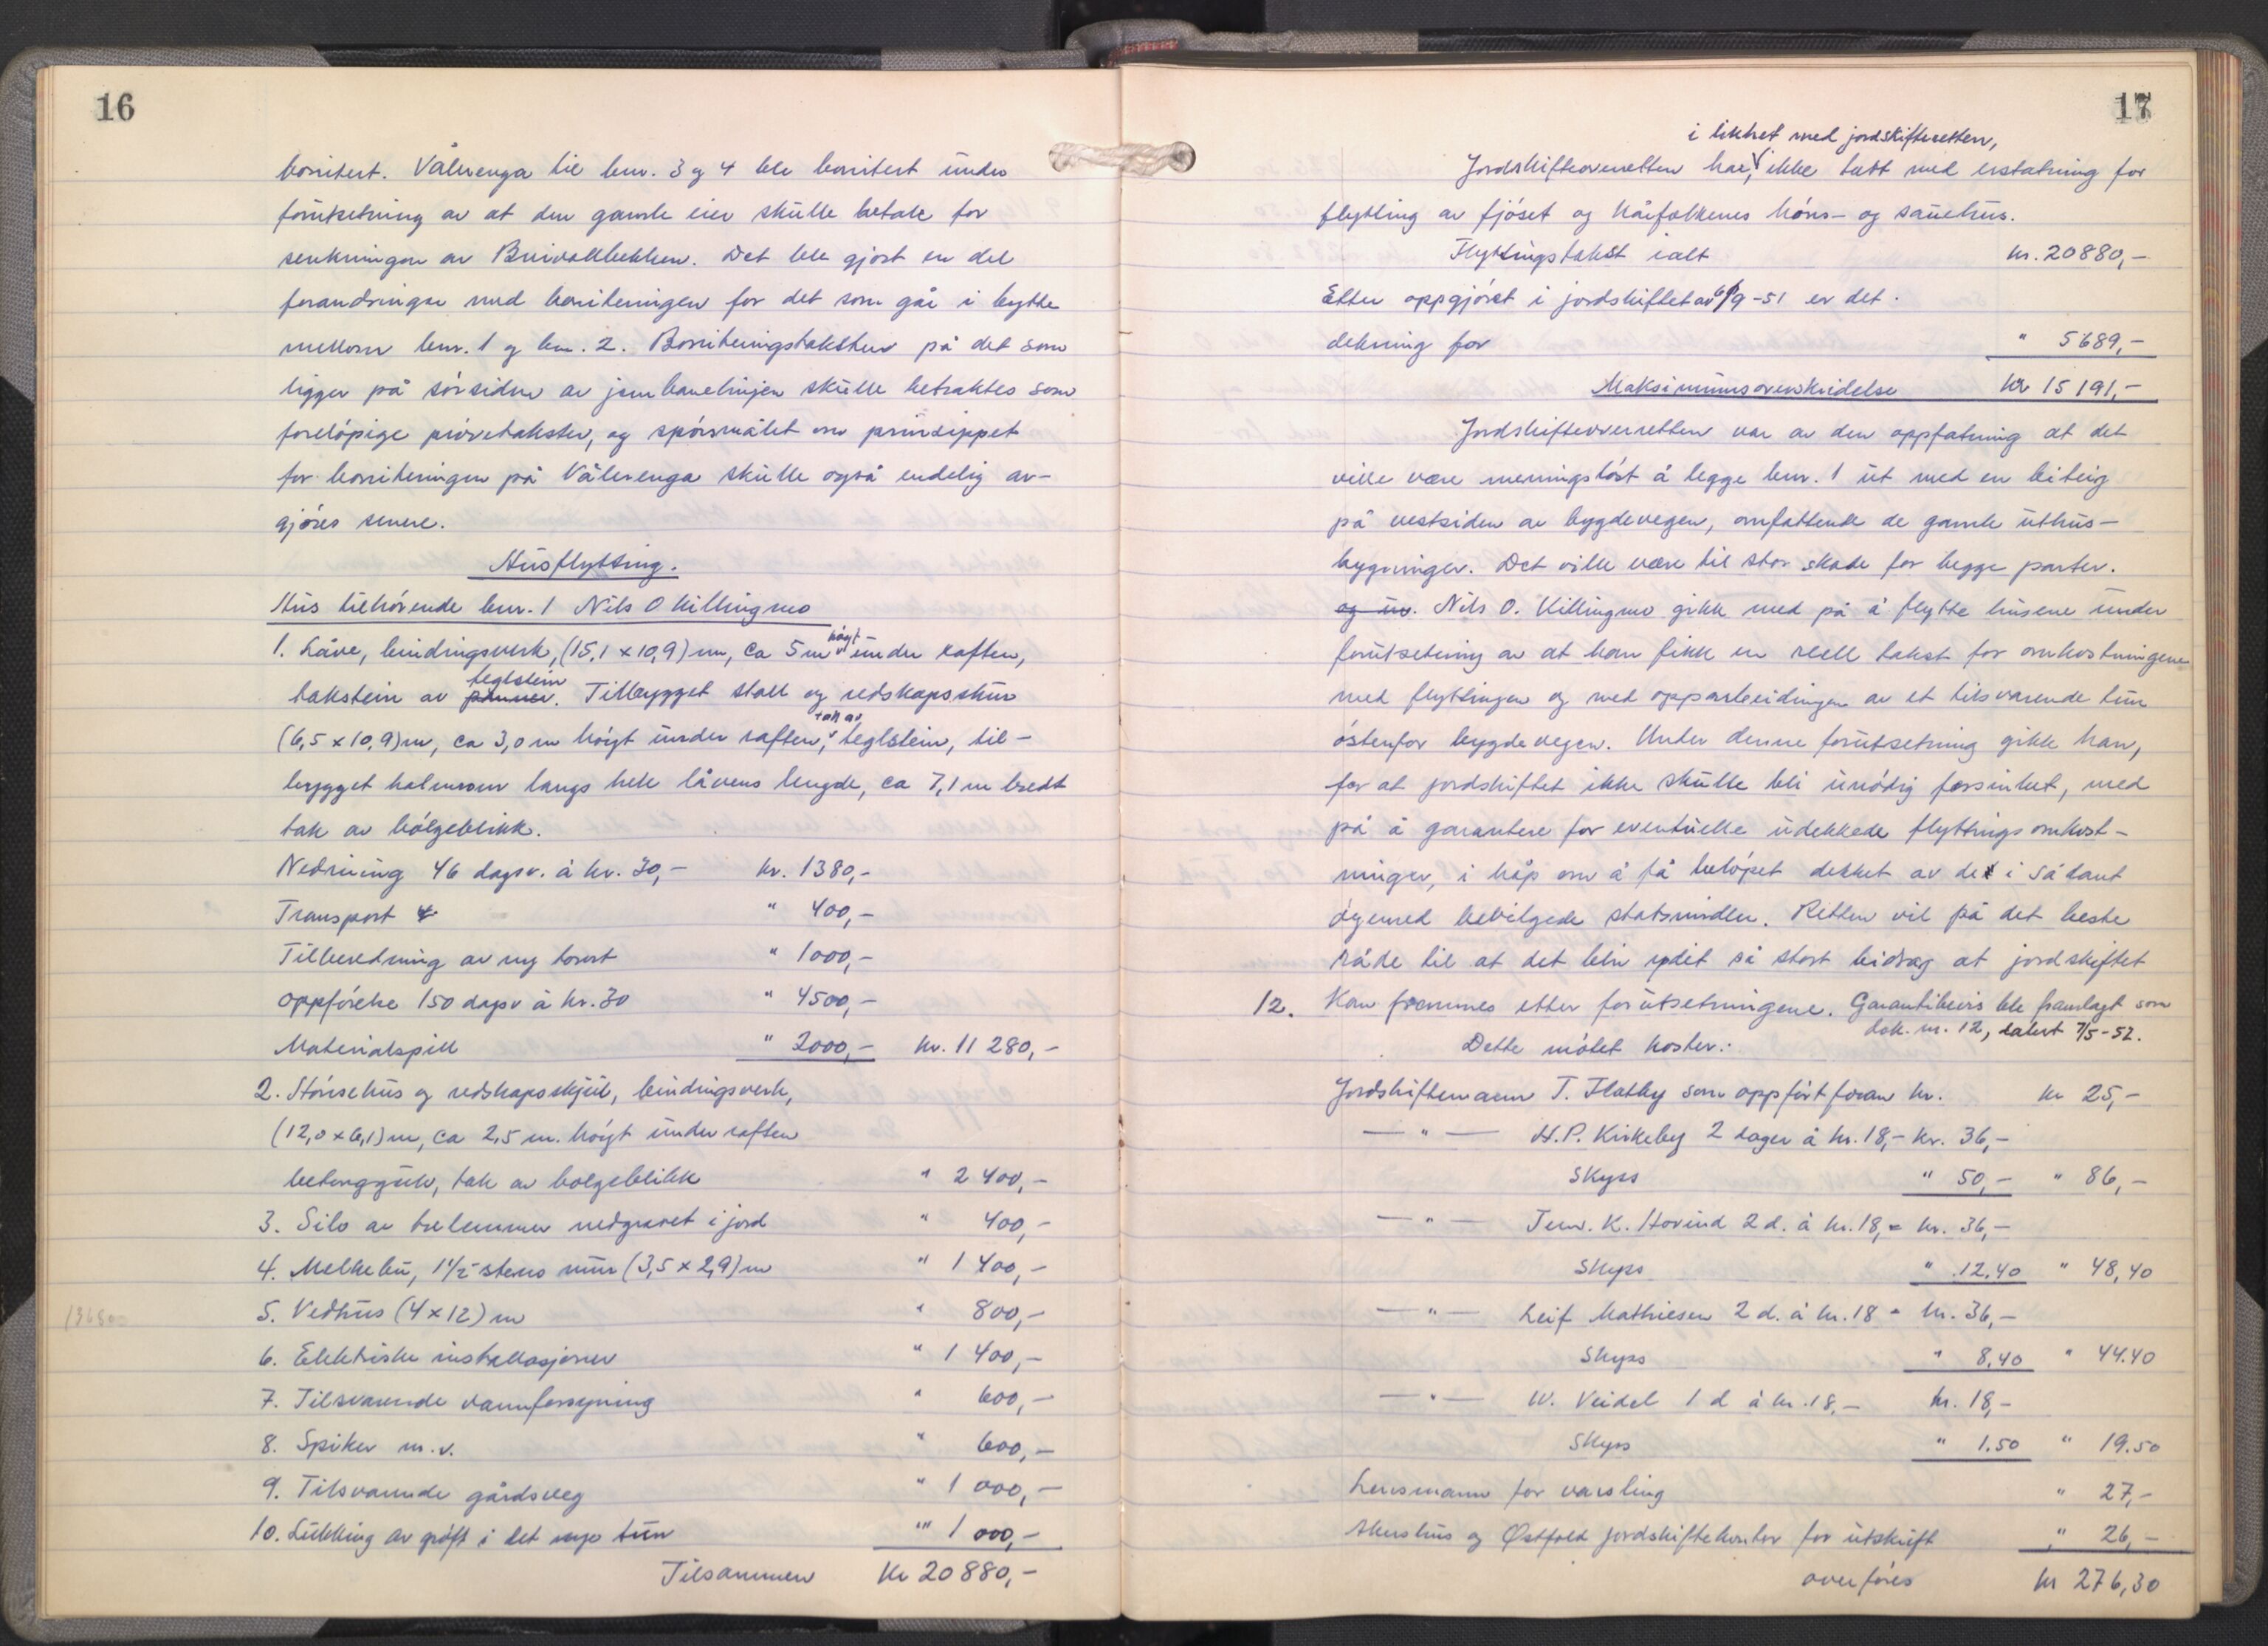 16
bonitert. Vålerenga til bnr. 3 og 4 ble bonitert under
forutsetning av at den gamle eier skulle betale for
senkningen av Buivollbekken. Det ble gjort en del
forandringer med boniteringen for det som går i bytte
mellom bnr. 1 og bnr. 2. Boniteringstaksten på det som
ligger på sørsiden av jernbanelinjen skulle betraktes som
foreløpige prøvetakster, og spørsmålet om prinsippet
for boniteringen på Vålerenga skulle også endelig av-
gjøres senere.
Husflytting.
Hus tilhørende bnr. 1 Nils O Killingmo
1. Låve, bindingsverk, (15,1 x 10,9) m, ca 5 m høgt under raften,
takstein av panner teglstein. Tilbygget stall og redskapsskur
(6,5 x 10,9) m, ca 3,0 m høgt under raften, tak av teglstein, til-
bygget halmrom langs hele låvens lengde, ca 7,1 m bredt
tak av bølgeblikk.
Nedriving 46 dagsv. à kr. 30,- kr. 1380,-
Transport " 400,-
Tilberedning av ny tomt " 1000,-
oppførelse 150 dagsv à kr. 30 " 4500,-
Materialspill " 2000,- kr. 11 280,-
2. Hønsehus og redskapsskjul, bindingsverk,
(12,0 x 6,1) m, ca 2,5 m. høgt under raften
betonggulv, tak av bølgeblikk " 2 400,-
3. Silo av trelemmer nedgravet i jord " 400,-
4. Melkebu, 1 1/2 stens mur (3,5 x 2,9) m " 1 400,-
13680
5. Vedhus (4 x 12) m " 800,-
6. Elektriske installasjoner " 1 400,-
7. Tilsvarende vannforsyning " 600,-
8. Spiker m.v. " 600,-
9. Tilsvarende gårdsveg " 1 000,-
10. Lukking av grøft i det nye tun " 1 000,-
Tilsammen Kr 20 880,-
17
i likhet med jordskifteretten,
Jordskifteoverretten har, ikke tatt med erstatning for
flytting av fjøset og kårfolkenes høns- og sauehus.
Flyttingstakst ialt kr. 20880,-
Etter oppgjøret i jordskiftet av 6/9-51 er det
dekning for " 5689,-
Maksimumsoverskridelse kr 15 191,-
Jordskifteoverretten var av den oppfatning at det
ville være meningsløst å legge bnr. 1 ut med en liteig
på vestsiden av bygdevegen, omfattende de gamle uthus-
bygninger. Det ville være til stor skade for begge parter.
og Nils O. Killingmo gikk med på å flytte husene under
forutsetning av at han fikk en reell takst for omkostningene
med flyttingen og med opparbeidingen av et tilsvarende tun
østenfor bygdevegen. Under denne forutsetning gikk han,
for at jordskiftet ikke skulle bli unødig forsinket, med
på å garantere for eventuelle udekkede flyttingsomkost-
ninger, i håp om å få beløpet dekket av de i sådant
øyemed bevilgede statsmidler. Retten vil på det beste
råde til at det blir ydet så stort bidrag at jordskiftet
12. Kan fremmes etter forutsetningene. Garantibevis ble framlagt som
dok. nr. 12, datert 7/5-52.
Dette møtet koster:
Jordskiftemann T. Flatby som oppført foran kr. kr 25,-
— " — H.P. Kirkeby 2 dager à kr. 18,- kr. 36,-
Skyss " 50,- " 86,-
— " — Tenv. K. Hovind 2 d. à kr. 18,- kr. 36,-
Skyss " 12,40 " 48,40
— " — Leif Mathiesen 2 d. à kr. 18 - kr. 36,-
Skyss " 8,40 " 44.40
— " — W. Veidel 1 d à kr. 18,- kr. 18,-
Skyss " 1.50 " 19.50
Lensmann for varsling " 27,-
Akershus og Østfold jordskiftekontor for utskrift " 26,-
overføres kr 276,30